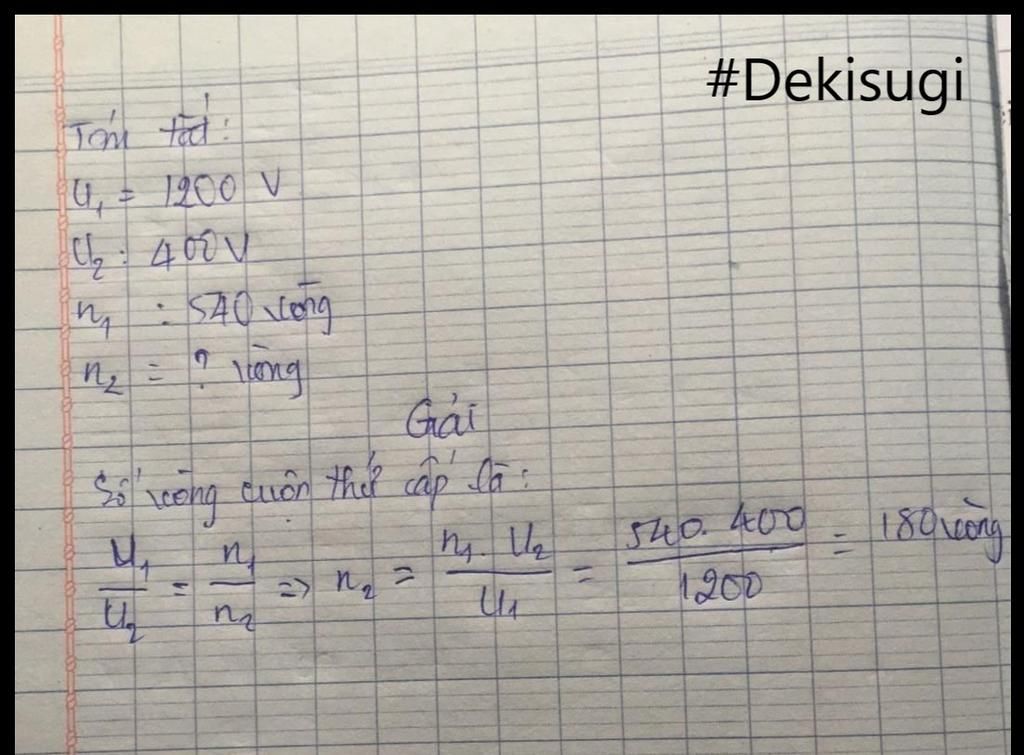 #Dekisugi
Tóm tắt:
U₁ = 1200 V
U₂ : 400V
n₁ : 540 vòng
n₂ = ? vòng
Giải
Số vòng cuộn thứ cấp là:
U₁/U₂ = n₁/n₂ => n₂ = n₁. U₂/U₁ = 540. 400/1200 = 180 vòng